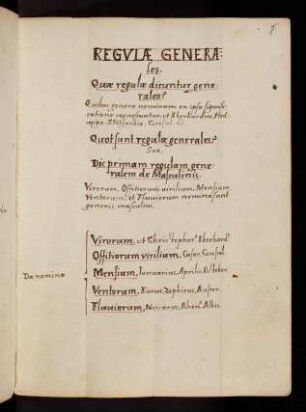 REGVLÆ GENERA:
les.
Quæ regulæ dicuntur gene
rales?
Quibus genera nominum ex ipsa signifi:
catione
Quot sunt regulæ generales?
Sex.
Dic primam regulam gene
ralem de Masculinis.
Virorum, Offitiorum virilium, Mensium,
Ventorum, et Fluviorum nomina sunt
generis masculini.
Virorum, ut Christophorꝰ Eberhardꝰ
Offitiorum virilium, Cæsar, Consul
Mensium, Ianuarius, Aprilis, October
Da nomina
Ventorum, Eurus, Zephirus, Auster.
Fluviorum, Rhenꝰ, Albis